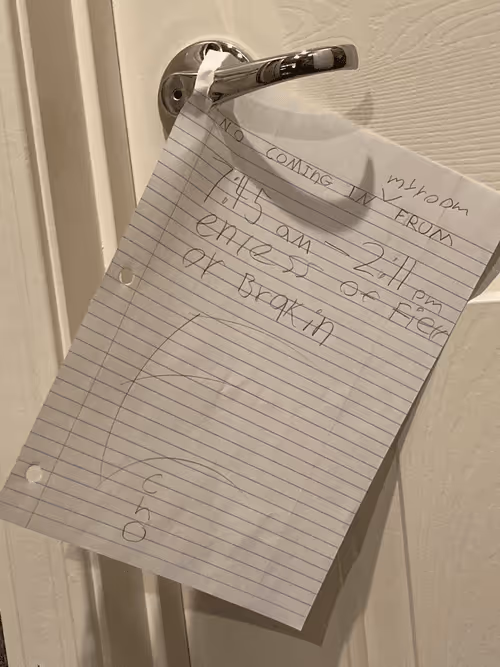 NO COMING IN myroom FROM
7:45 am - 2:11 pm
enless of Fier
or Brakin
C
h
O